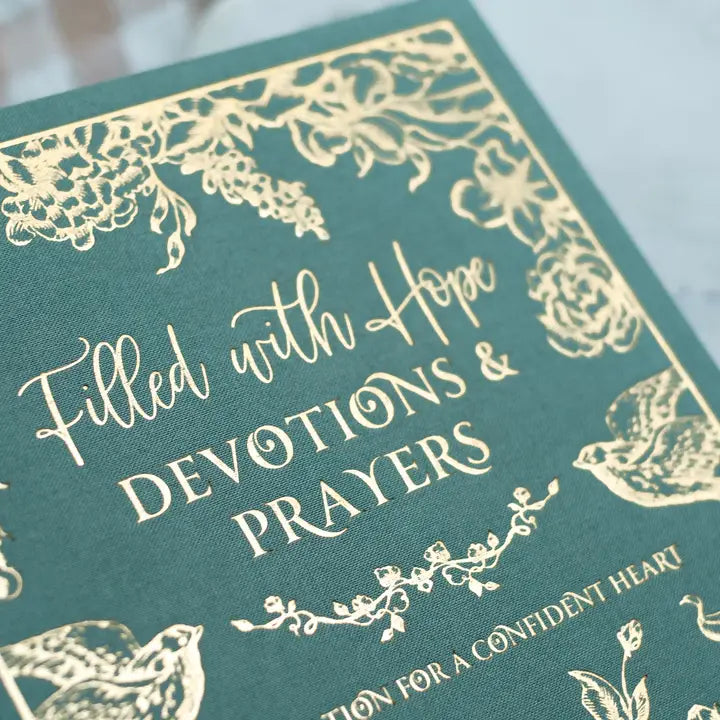 Filled with Hope
DEVOTIONS &
PRAYERS
FOR A CONFIDENT HEART